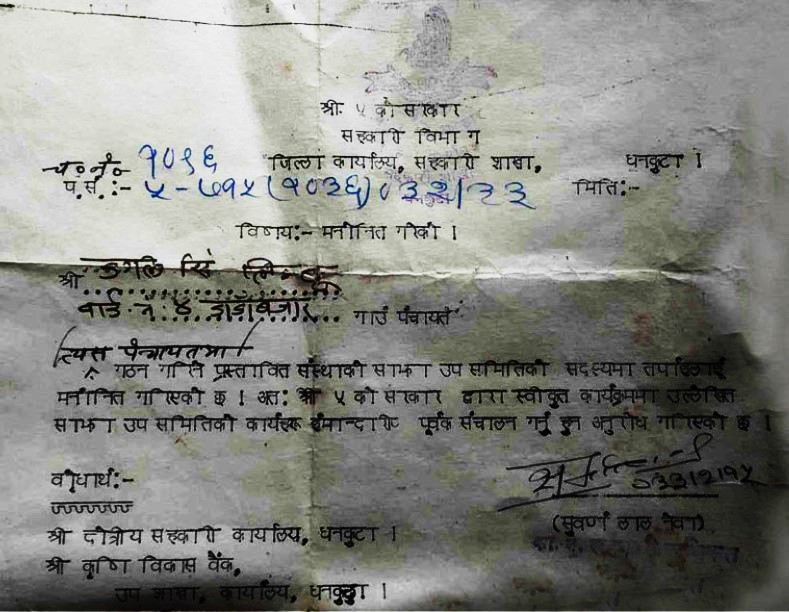 श्री ५ को सरकार
सहकारी विभाग
जिल्ला कार्यालय, सहकारी शाखा, धनकुटा ।
च० नं० १०१६
प.सं.:- ५-७१५(१०३६)०३२/३३ मिति:-
विषय:- मनोनित गरेको ।
श्री
वार्ड नं ४ डाँडाबजार गाउँ पंचायत
त्यस पंचायतमा
गठन गरिने प्रस्तावित संस्थाको साझा उप समितिको सदस्यमा तपाईलाई
मनोनित गरिएको छ । अत: श्री ५ को सरकार द्वारा स्वीकृत कार्यक्रममा उल्लेखित
साझा उप समितिको कार्यहरू ईमान्दारी पूर्वक संचालन गर्नु हुन अनुरोध गरिएको छ ।
०३३।२।१५
(सुवर्ण लाल नेवा)
बोधार्थ:-
श्री क्षेत्रीय सहकारी कार्यालय, धनकुटा ।
श्री कृषि विकास बैंक,
उप शाखा, कार्यालय, धनकुटा ।